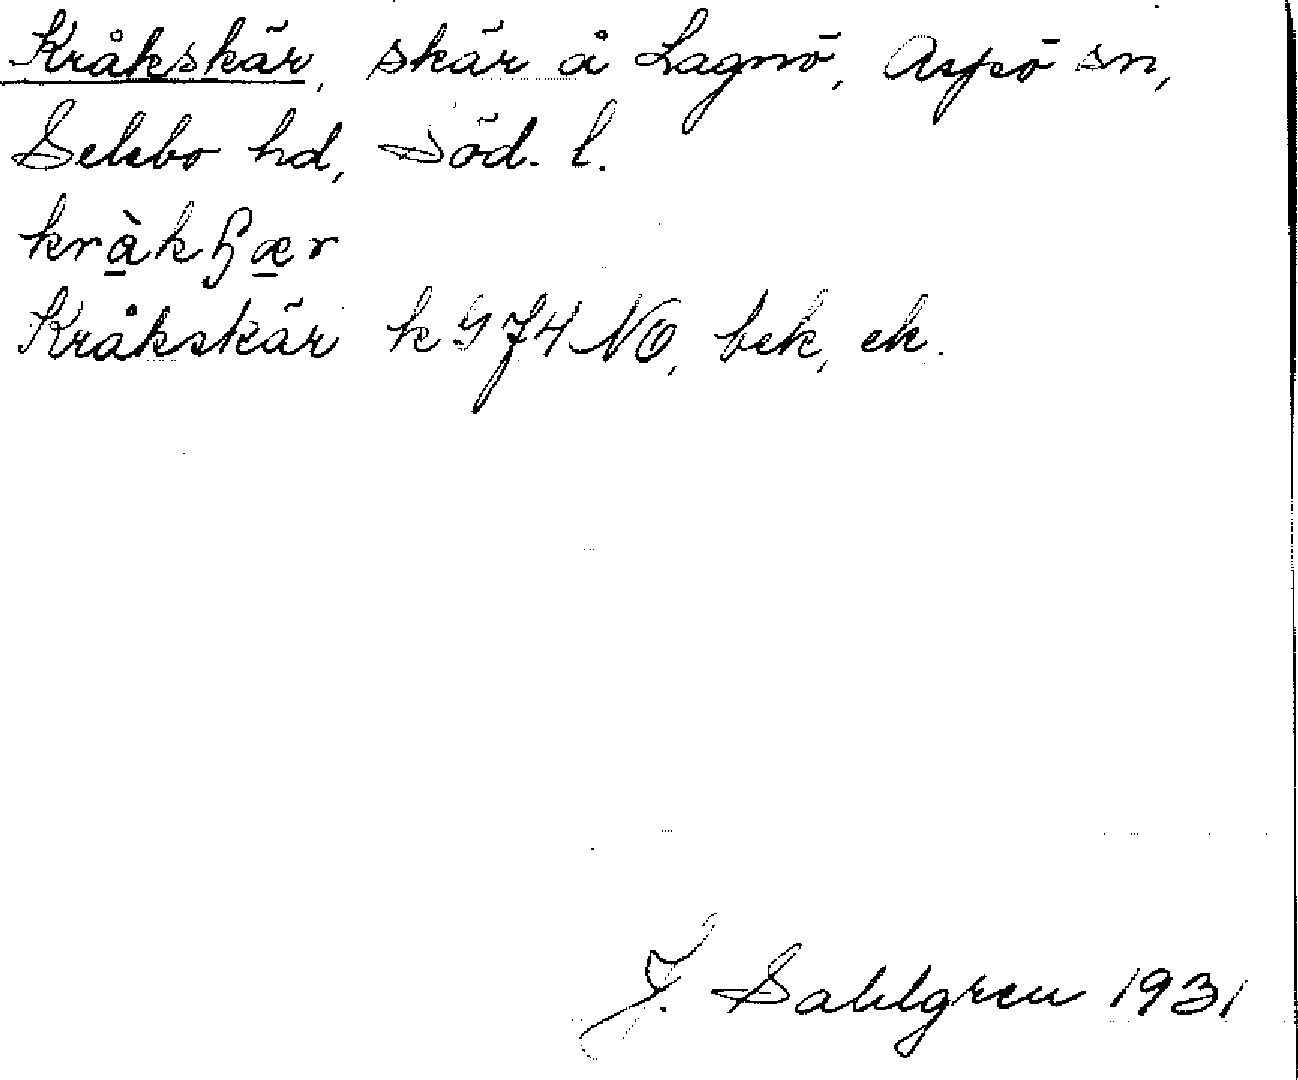 Kråkskär, skär å Lagnö, Aspö sn,
Selebo hd, Söd. l.
kràkɧær
Kråkskär k G 74 NO, bek, ek.
J. Sahlgren 1931